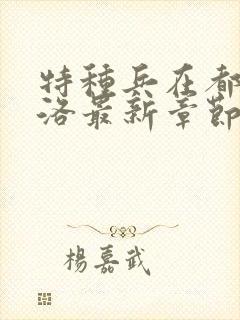 特種兵在都
洛最新章節
楊嘉武